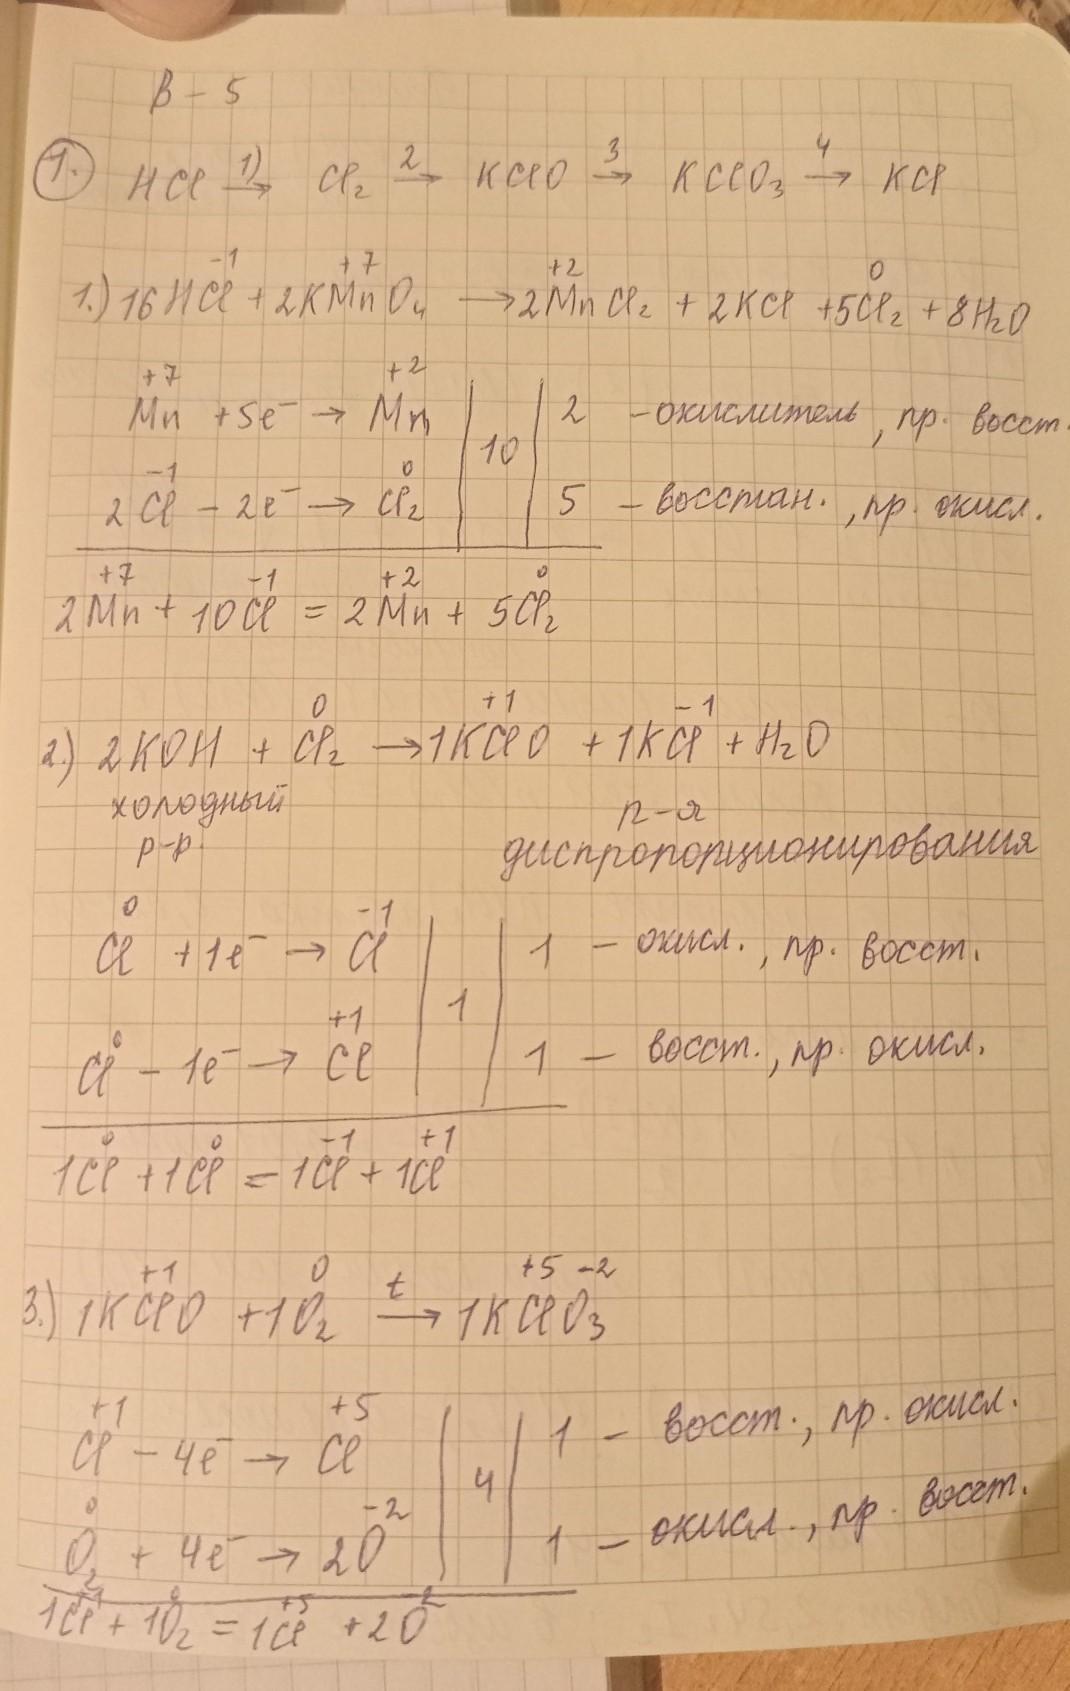 В - 5
1. HCl 1)→ Cl₂ 2→ KClO 3→ KClO₃ 4→ KCl
-1 +7 +2 0
1.) 16HCl + 2KMnO₄ → 2MnCl₂ + 2KCl + 5Cl₂ + 8H₂O
+7 +2
Mn + 5e⁻ → Mn | 10 | 2 - окислитель, пр. восст.
-1 0
2Cl - 2e⁻ → Cl₂ | | 5 - восстан., пр. окисл.
+7 -1 +2 0
2Mn + 10Cl = 2Mn + 5Cl₂
0 +1 -1
2.) 2KOH + Cl₂ → 1KClO + 1KCl + H₂O
холодный р-я
р-р. диспропорционирования
0 -1
Cl + 1e⁻ → Cl | 1 | 1 - окисл., пр. восст.
0 +1
Cl - 1e⁻ → Cl | | 1 - восст., пр. окисл.
0 0 -1 +1
1Cl + 1Cl = 1Cl + 1Cl
+1 0 t +5 -2
3.) 1KClO + 1O₂ → 1KClO₃
+1 +5
Cl - 4e⁻ → Cl | 4 | 1 - восст., пр. окисл.
0 -2
O₂ + 4e⁻ → 2O | | 1 - окисл., пр. восст.
+1 0 +5 -2
1Cl + 1O₂ = 1Cl + 2O